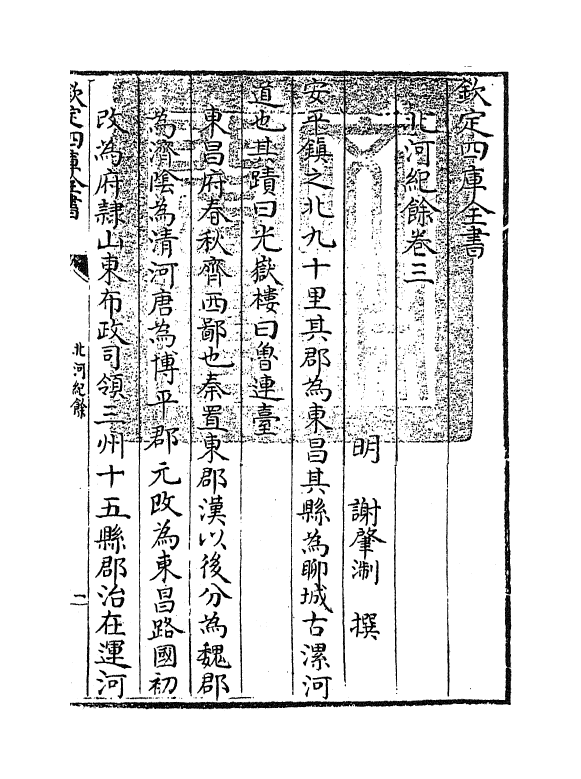 欽定四庫全書
北河紀餘卷三
明 謝肇淛 撰
安平鎮之北九十里其郡為東昌其縣為聊城古漯河
道也其蹟曰光嶽樓曰魯連臺
東昌府春秋齊西鄙也秦置東郡漢以後分為魏郡
為濟陰為清河唐為博平郡元改為東昌路國初
改為府隸山東布政司領三州十五縣郡治在運河
欽定四庫全書
北河紀餘